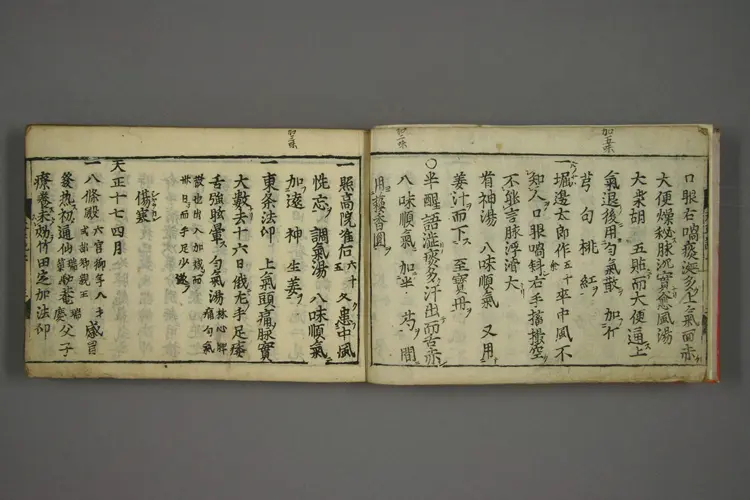 口眼右喎痰涎多上氣而赤
大便燥秘脉沉實愈風湯
大柴胡 五貼而大便通上
氣退後用匀氣散 加竹
芎 匀 桃 紅
一堀邊太郎作五十卒中風不
知人口眼喎斜右手搐撮空
不能言脉浮滑大
省神湯 八味順氣 又用
姜汁而下 至寶丹
○半醒語澁痰多汗出而舌赤
八味順氣 加半 芍 間
用藿香圓
一照高院准后六十五 久患中風
恍忘 調氣湯 八味順氣
加遠 神 生姜
一東条法印 上氣頭痛脉實
大數去十六日俄尤手足痿
舌強眩暈 匀氣湯
傷寒
天正十七四月
一八條殿 感冒
發熱初通仙 父子
療養未効竹田定加法印